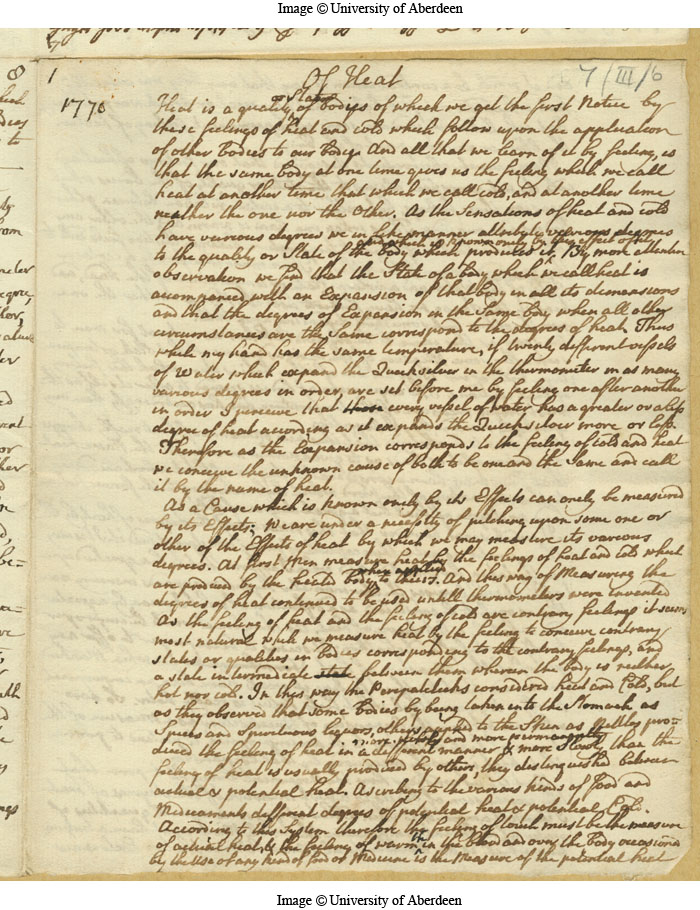 Image © University of Aberdeen
7/III/6
1
Of Heat
1770
or State
Heat is a quality of bodys of which we get the first Notice by
these feelings of heat and cold which follow upon the application
of other bodies to our body. And all that we learn of it by feeling, is
that the same body at one time gives us the feeling which we call
heat at another time that which we call cold, and at another time
neither the one nor the other. As the Sensations of heat and cold
have various degrees we in like manner attribute various degrees
and which is known only by this effect of it
to the quality or State of the body which produces it. By more attentive
observation we find that the State of a body which we call heat is
accompanied with an Expansion of that body in all its dimensions
and that the degrees of Expansion in the Same body when all other
circumstances are the Same correspond to the degrees of heat. Thus
while my hand has the same temperature, if twenty different vessels
of Water which expand the Quicksilver in the thermometer in as many
various degrees in order, are set before me by feeling one after another
in order I perceive that those every vessel of water has a greater or a less
degree of heat according as it expands the Quicksilver more or less.
Therefore as the Expansion corresponds to the feeling of cold and heat
we conceive the unknown cause of both to be one and the Same and call
it by the name of heat.
As a Cause which is known onely by its Effects can onely be measured
by its Effects; We are under a necessity of pitching upon some one or
other of the Effects of heat by which we may measure its various
degrees. At first Men measure heat by the feelings of heat and cold which
when applied
are produced by the heated body to theirs. And this way of Measuring the
degrees of heat continued to be used untill thermometers were invented
As the feeling of heat and the feeling of cold are contrary feelings it seems
most natural while we measure heat by the feeling to conceive contrary
states or qualities in bodies corresponding to the contrary feelings, and
a state intermediate state between them wherein the body is neither
hot nor cold. In this way the Peripateticks considered heat and Cold, but
as they observed that some bodies by being taken into the Stomach as
Spices and Spirituous liquors, others applied to the Skin as Nettles pro-
and more permanently
duced the feeling of heat in a different manner & more slowly than the
feeling of heat is usually produced by others, they distinguished between
actual & potential heat. Ascribing to the various kinds of food and
Medicaments different degrees of potential heat & potential Cold.
According to this System therefore the feeling of touch must be the measure
of actual heat & the feeling of warm in the blood and over the body occasioned
by the Use of any kind of food or Medicine is the Measure of the potential heat
Image © University of Aberdeen